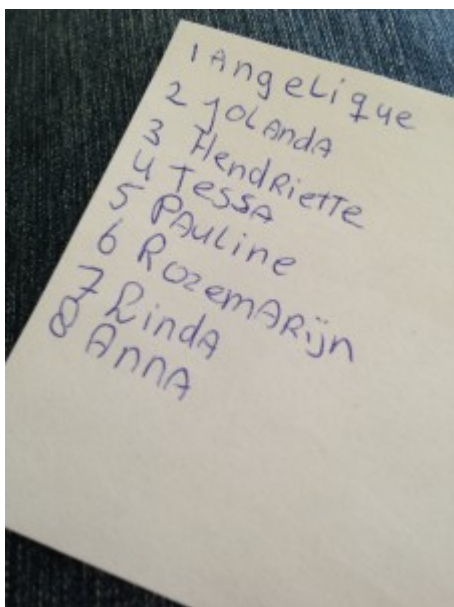 1 Angelique
2 Jolanda
3 Hendriette
4 Tessa
5 Pauline
6 Rozemarijn
7 Linda
8 Anna